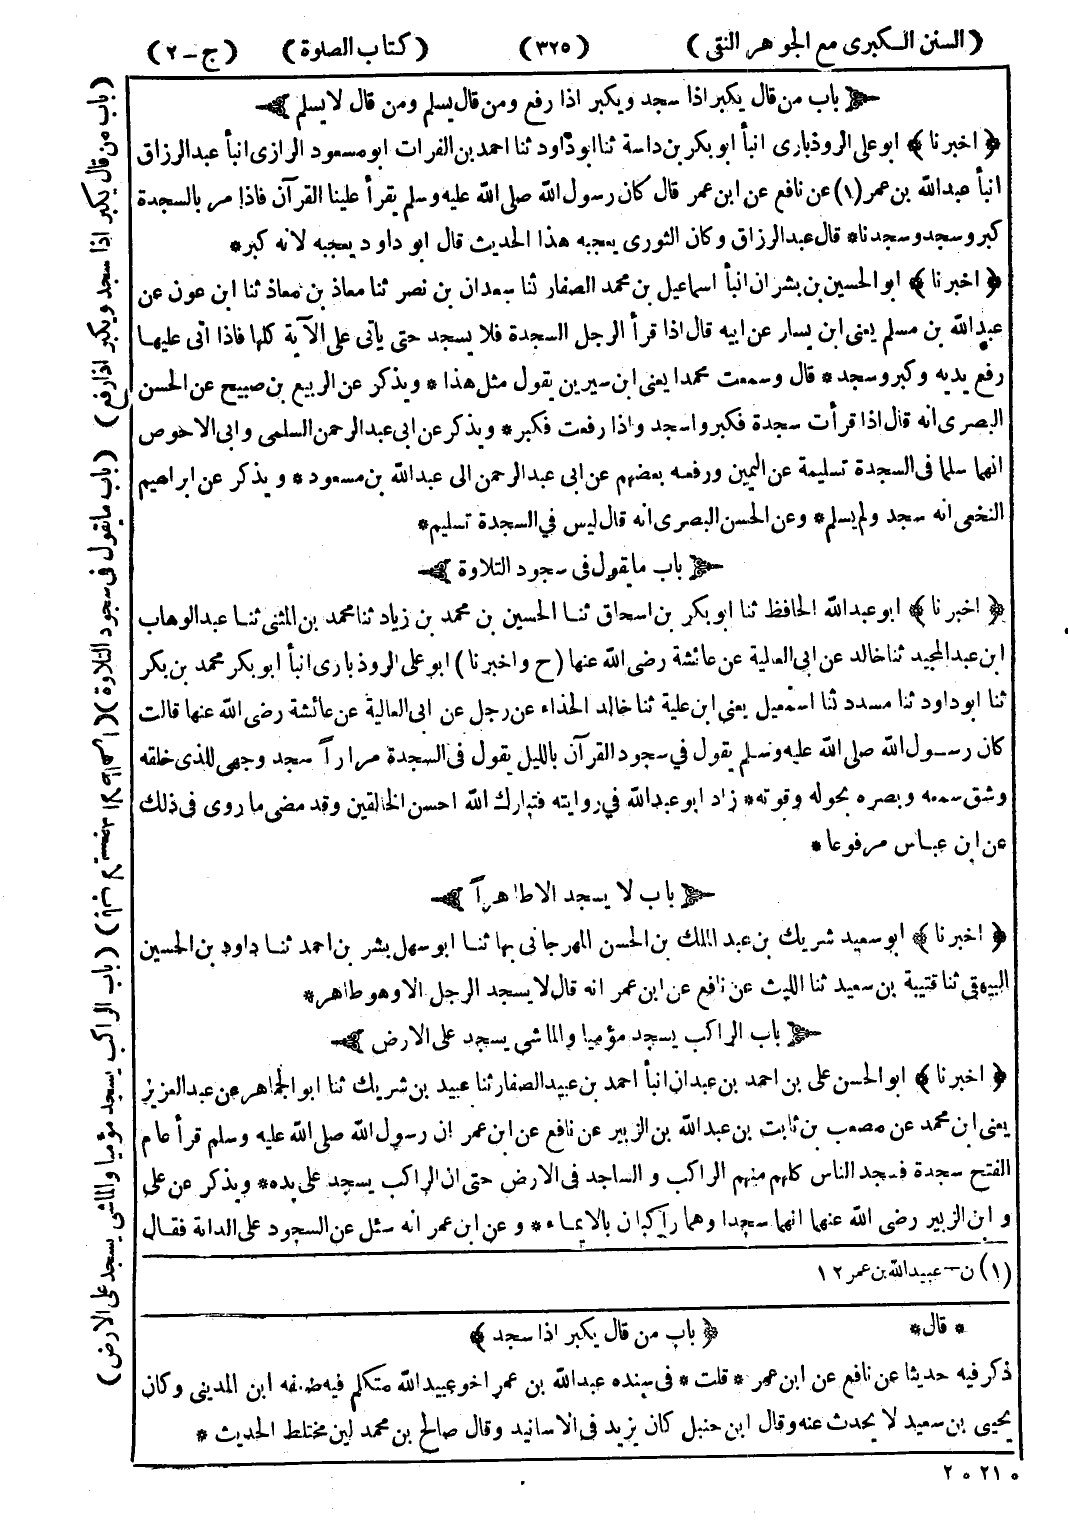 (السنن الكبرى مع الجوهر النقى) (٣٢٥) (كتاب الصلوة) (ج-٢)
باب من قال يكبر اذا سجد ويكبر اذا رفع ومن قال يسلم ومن قال لا يسلم
﴿ اخبرنا ﴾ ابو على الروذبارى انبأ ابو بكر بن داسة ثنا ابو داود ثنا احمد بن الفرات ابو مسعود الرازى انبأ عبد الرزاق
انبأ عبد الله بن عمر (١) عن نافع عن ابن عمر قال كان رسول الله صلى الله عليه وسلم يقرأ علينا القرآن فاذا مر بالسجدة
كبر وسجد وسجدنا * قال عبد الرزاق وكان الثورى يعجبه هذا الحديث قال ابو داود يعجبه لانه كبر *
﴿ اخبرنا ﴾ ابو الحسين بن بشران انبأ اسماعيل بن محمد الصفار ثنا سعدان بن نصر ثنا معاذ بن معاذ ثنا ابن عون عن
عبد الله بن مسلم يعنى ابن يسار عن ابيه قال اذا قرأ الرجل السجدة فلا يسجد حتى يأتى على الآية كلها فاذا اتى عليها
رفع يديه وكبر وسجد * قال وسمعت محمدا يعنى ابن سيرين يقول مثل هذا * ويذكر عن الربيع بن صبيح عن الحسن
البصرى انه قال اذا قرأت سجدة فكبر واسجد واذا رفعت فكبر * ويذكر عن ابى عبد الرحمن السلمى وابى الاحوص
انهما سلما فى السجدة تسليمة عن اليمين ورفعه بعضهم عن ابى عبد الرحمن الى عبد الله بن مسعود * ويذكر عن ابراهيم
النخعى انه سجد ولم يسلم * وعن الحسن البصرى انه قال ليس فى السجدة تسليم *
باب ما يقول فى سجود التلاوة
﴿ اخبرنا ﴾ ابو عبد الله الحافظ ثنا ابو بكر بن اسحاق ثنا الحسين بن محمد بن زياد ثنا محمد بن المثنى ثنا عبد الوهاب
ابن عبد المجيد ثنا خالد عن ابى العالية عن عائشة رضى الله عنها (ح واخبرنا) ابو على الروذبارى انبأ ابو بكر محمد بن بكر
ثنا ابو داود ثنا مسدد ثنا اسمعيل يعنى ابن علية ثنا خالد الحذاء عن رجل عن ابى العالية عن عائشة رضى الله عنها قالت
كان رسول الله صلى الله عليه وسلم يقول فى سجود القرآن بالليل يقول فى السجدة مرارا سجد وجهى للذى خلقه
وشق سمعه وبصره بحوله وقوته * زاد ابو عبد الله فى روايته فتبارك الله احسن الخالقين وقد مضى ما روى فى ذلك
عن ابن عباس مرفوعا *
باب لا يسجد الا طاهرا
﴿ اخبرنا ﴾ ابو سعيد شريك بن عبد الملك بن الحسن المهرجانى بها ثنا ابو سهل بشر بن احمد ثنا داود بن الحسين
البيهقى ثنا قتيبة بن سعيد ثنا الليث عن نافع عن ابن عمر انه قال لا يسجد الرجل الا وهو طاهر *
باب الراكب يسجد مؤميا والماشى يسجد على الارض
﴿ اخبرنا ﴾ ابو الحسن على بن احمد بن عبدان انبأ احمد بن عبيد الصفار ثنا عبيد بن شريك ثنا ابو الجماهر عن عبد العزيز
يعنى ابن محمد عن مصعب بن ثابت بن عبد الله بن الزبير عن نافع عن ابن عمر ان رسول الله صلى الله عليه وسلم قرأ عام
الفتح سجدة فسجد الناس كلهم منهم الراكب والساجد فى الارض حتى ان الراكب يسجد على يده * ويذكر عن على
وابن الزبير رضى الله عنهما انهما سجدا وهما راكبان بالايماء * وعن ابن عمر انه سئل عن السجود على الدابة فقال
(١) ن - عبيد الله بن عمر ١٢
* قال * ﴿ باب من قال يكبر اذا سجد ﴾
ذكر فيه حديثا عن نافع عن ابن عمر * قلت * فى سنده عبد الله بن عمر اخو عبيد الله متكلم فيه ضعفه ابن المدينى وكان
يحيى بن سعيد لا يحدث عنه وقال ابن حنبل كان يزيد فى الاسانيد وقال صالح بن محمد لين مختلط الحديث *
(باب من قال يكبر اذا سجد ويكبر اذا رفع) (باب ما يقول فى سجود التلاوة) (باب الراكب يسجد مؤميا والماشى يسجد على الارض)